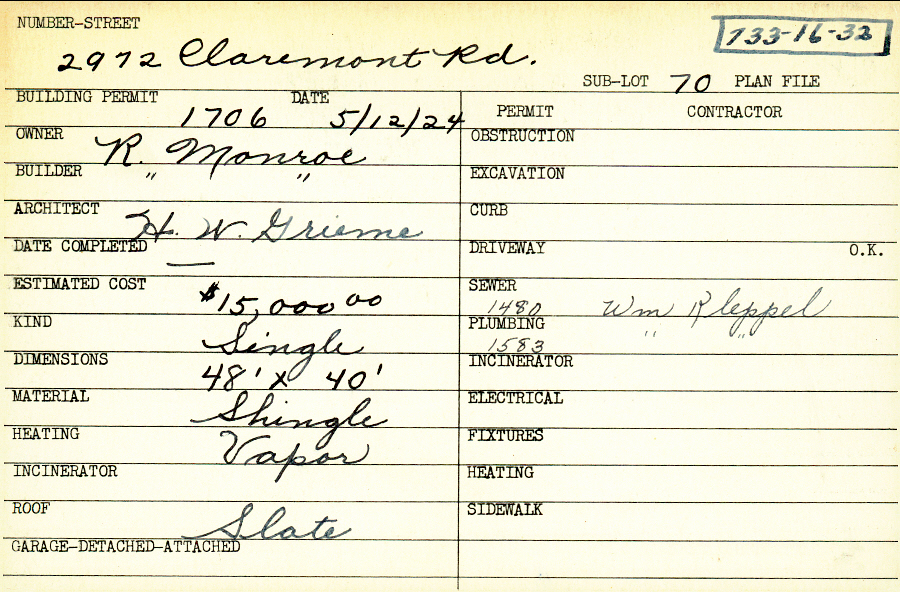 NUMBER-STREET
733-16-32
2972 Claremont Rd.
SUB-LOT 70 PLAN FILE
BUILDING PERMIT DATE
1706 5/12/24
PERMIT CONTRACTOR
OWNER R. Monroe
OBSTRUCTION
BUILDER " "
EXCAVATION
ARCHITECT H. W. Grieme
CURB
DATE COMPLETED —
DRIVEWAY O.K.
ESTIMATED COST $15,000 00
SEWER 1480 Wm Kleppel
KIND Single
PLUMBING 1583 " "
DIMENSIONS 48' x 40'
INCINERATOR
MATERIAL Shingle
ELECTRICAL
HEATING Vapor
FIXTURES
INCINERATOR
HEATING
ROOF Slate
SIDEWALK
GARAGE-DETACHED-ATTACHED